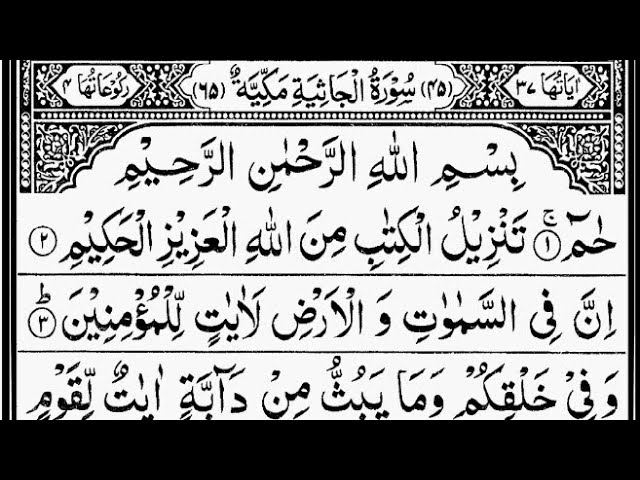 اٰيَاتُهَا ٣٧ (٤٥) سُوْرَةُ الْجَاثِيَةِ مَكِّيَّةٌ (٦٥) رُكُوْعَاتُهَا ٤
بِسْمِ اللهِ الرَّحْمٰنِ الرَّحِيْمِ
حٰمٓ ۚ ﴿١﴾ تَنْزِيْلُ الْكِتٰبِ مِنَ اللهِ الْعَزِيْزِ الْحَكِيْمِ ﴿٢﴾
اِنَّ فِى السَّمٰوٰتِ وَ الْاَرْضِ لَاٰيٰتٍ لِّلْمُؤْمِنِيْنَ ؕ ﴿٣﴾
وَ فِيْ خَلْقِكُمْ وَمَا يَبُثُّ مِنْ دَآبَّةٍ اٰيٰتٌ لِّقَوْمٍ